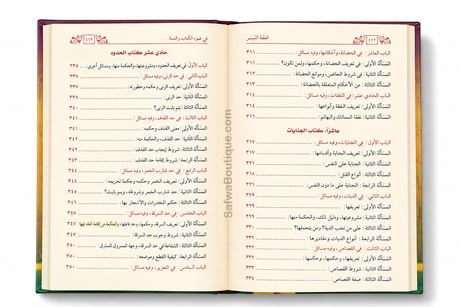 ٤١٢
الفقه الميسر
الباب العاشر: في الحضانة، وأحكامها، وفيه مسائل: ٣١١
المسألة الأولى: في تعريف الحضانة، وحكمها، ولمن تكون؟ ٣١١
المسألة الثانية: في شروط الحاضن، وموانع الحضانة ٣١٢
المسألة الثالثة: من الأحكام المتعلقة بالحضانة ٣١٣
الباب الحادي عشر: في النفقات، وفيه مسائل: ٣١٤
المسألة الأولى: تعريف النفقة وأنواعها ٣١٤
المسألة الثانية: نفقة المماليك والبهائم ٣١٦
عاشراً، كتاب الجنايات
الباب الأول: في الجنايات، وفيه مسائل: ٣١٧
المسألة الأولى: تعريف الجناية وأقسامها ٣١٧
المسألة الثانية: الجناية على النفس ٣٢١
المسألة الثالثة: أنواع القتل ٣١٨
المسألة الرابعة: الجناية على ما دون النفس ٣٢١
الباب الثاني: في الديات، وفيه مسائل:
المسألة الأولى: تعريفها
المسألة الثانية: مشروعيتها، ودليل ذلك، والحكمة منها
المسألة الثالثة: على من تجب الدية؟ ومن يتحملها؟
المسألة الرابعة: أنواع الديات ومقاديرها
الباب الثالث: في القسامة، وفيه مسائل:
المسألة الأولى: تعريفها، وحكمها، وحكمتها
المسألة الثانية: شروط القسامة
المسألة الثالثة: صفة القسامة ٣٣٤
في ضوء الكتاب والسنة
٤١٣
حادي عشر كتاب الحدود
الباب الأول: في تعريف الحدود، ومشروعيتها، والحكمة منها، ومسائل أخرى ٣٣٥
الباب الثاني: في حد الزنى، وفيه مسائل: ٣٣٧
المسألة الأولى: تعريف الزنى وحكمه وخطورته ٣٣٧
المسألة الثانية: حد الزنى
المسألة الثالثة: بم يثبت الزنى؟ ٣٤٠
الباب الثالث: في حد القذف، وفيه مسائل: ٣٤١
المسألة الأولى: معنى القذف وحكمه ٣٤١
المسألة الثانية: حد القذف، والحكمة منه
المسألة الثالثة: شروط إيجاب حد القذف ٣٤٢
المسألة الرابعة: شروط إقامة حد القذف ٣٤٣
الباب الرابع: في حد شارب الخمر، وفيه مسائل: ٣٤٤
المسألة الأولى: تعريف الخمر وحكمه وحكمة تحريمه ٣٤٤
المسألة الثانية: حد شارب الخمر وشروطه، وبم يثبت؟ ٣٤٥
المسألة الثالثة: حكم المخدرات والاتجار بها
الباب الخامس: في حد السرقة، وفيه مسائل: ٣٤٧
المسألة الأولى: تعريف السرقة، وحكمها، وحد فاعلها، والحكمة من إقامة الحد فيها ٣٤٧
المسألة الثانية: شروط وجوب حد السرقة ٣٤٧
المسألة الثالثة: الشفاعة في حد السرقة، وهبة المسروق للسارق ٣٥٠
المسألة الرابعة: كيفية القطع وموضعه ٣٥٠
الباب السادس: في التعزير، وفيه مسائل:
SafwaBoutique.com